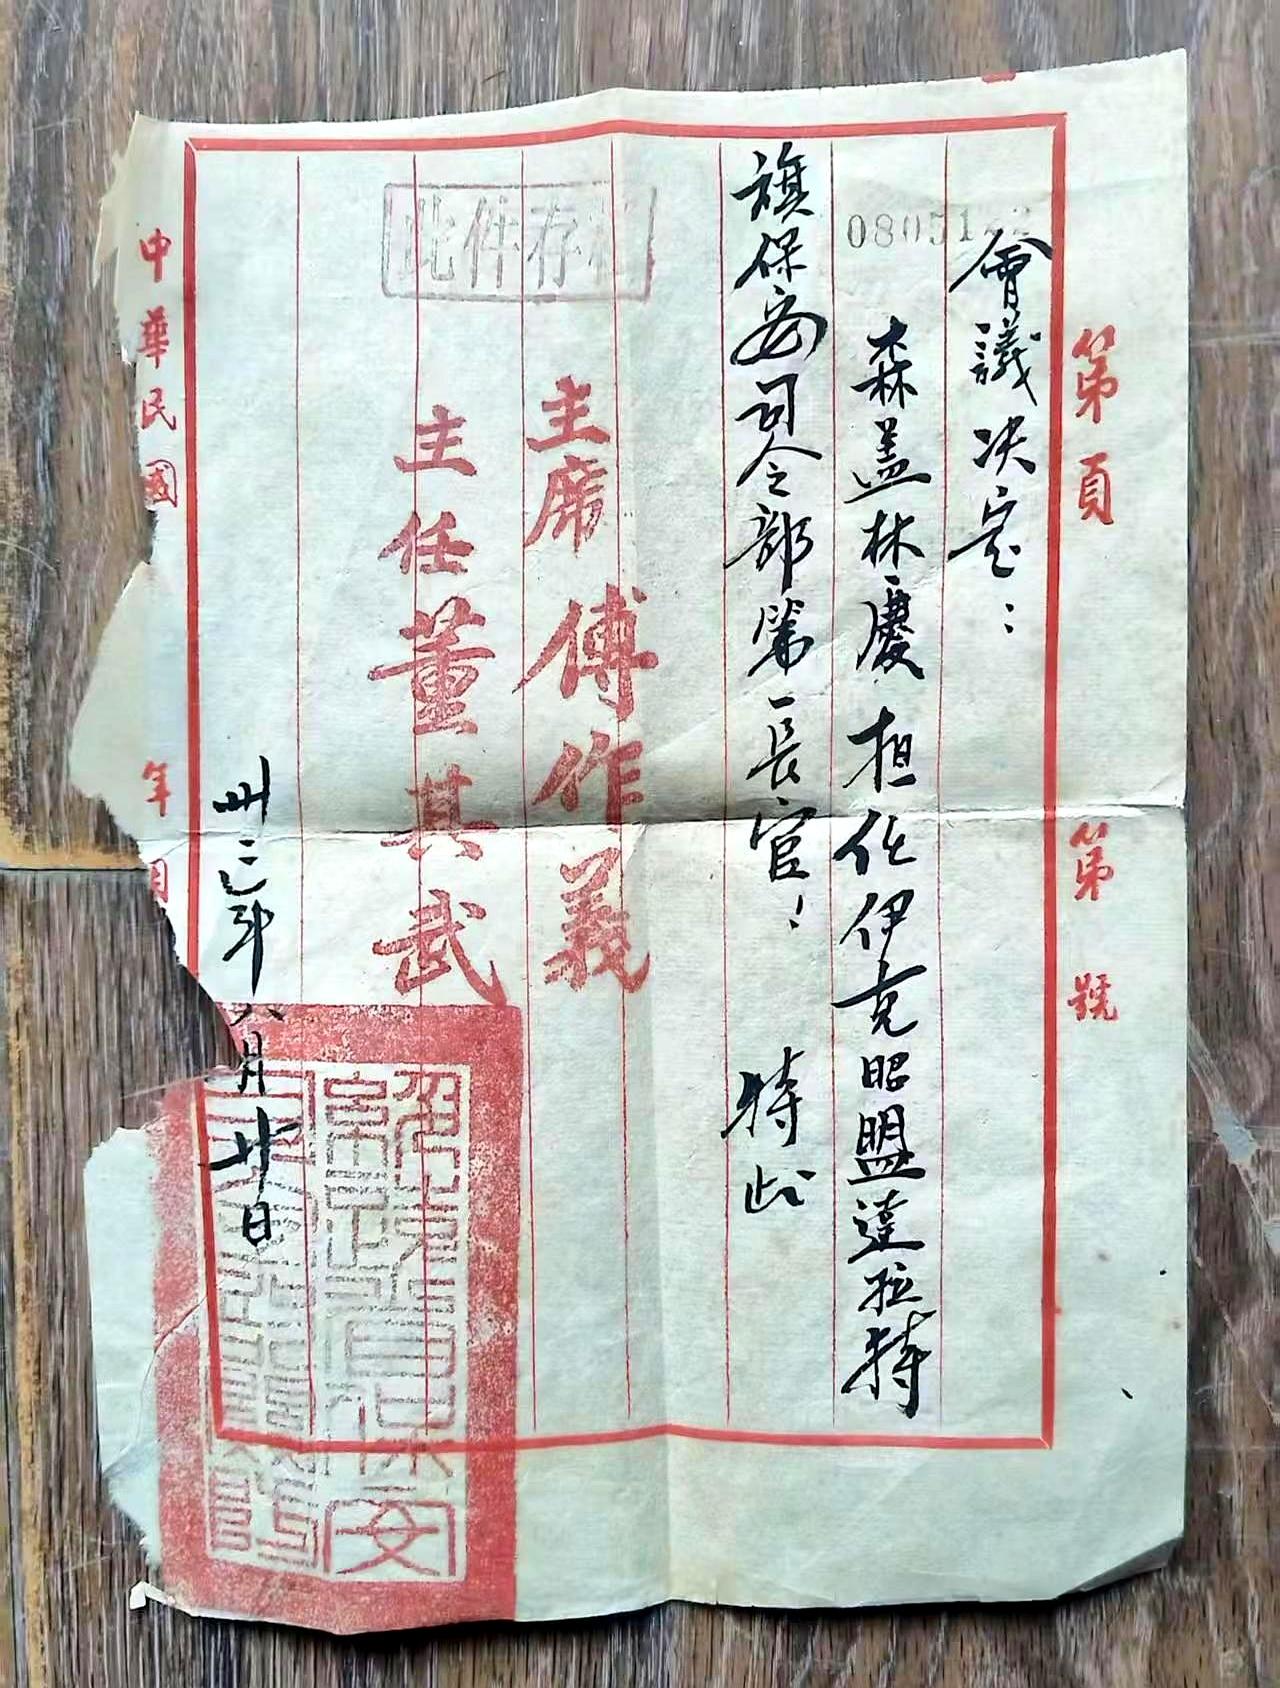 第 頁 第 號
會議决定：
08051
森盖林慶担任伊克昭盟達拉特
旗保安司令部第一長官！ 特此
主席 傅作義
主任 董其武
此件存
卅三年六月廿日
中華民國 年 月